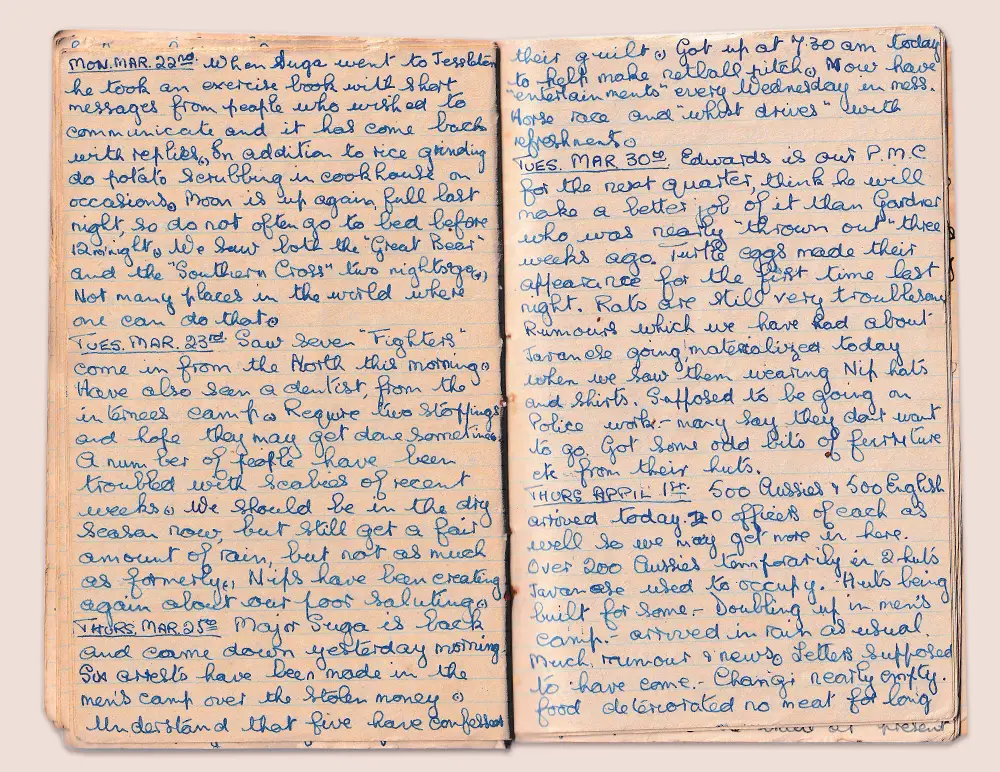 MON. MAR. 22nd. When Suga went to Jessleton
he took an exercise book with short
messages from people who wished to
communicate and it has come back
with replies. In addition to rice grinding
do potato scrubbing in cookhouse on
occasions. Moon is up again, full last
night, so do not often go to bed before
12 m'night. We saw both the "Great Bear"
and the "Southern Cross" two nights ago.
Not many places in the world where
one can do that.
TUES. MAR. 23rd. Saw seven "Fighters"
come in from the North this morning.
Have also seen a dentist, from the
internees camp. Require two stoppings
and hope they may get done sometime.
A number of people have been
troubled with scabies of recent
weeks. We should be in the dry
season now but still get a fair
amount of rain, but not as much
as formerly. Nips have been creating
again about our poor saluting.
THURS. MAR. 25th Major Suga is back
and came down yesterday morning.
Six arrests have been made in the
men's camp over the stolen money.
Understand that five have confessed
their guilt. Got up at 7.30 am today
to help make netball pitch. Now have
"entertainments" every Wednesday in mess.
Horse race and "whist drives" with
refreshments.
TUES. MAR 30th Edwards is our P.M.C
for the next quarter, think he will
make a better job of it than Gardner
who was nearly "thrown out" three
weeks ago. Turtle eggs made their
appearance for the first time last
night. Rats are still very troublesome
Rumours which we have had about
Javanese going materialized today
when we saw them wearing Nip hats
and shirts. Supposed to be going on
Police work - many say they don't want
to go. Got some odd bits of furniture
etc from their huts.
THURS APPIL 1st. 500 Aussies & 500 English
arrived today. 20 officers of each as
well so we may get more in here.
Over 200 Aussies temporarily in 2 huts
Javanese used to occupy. Huts being
built for some - Doubling up in men's
camp. - arrived in rain as usual.
Much rumour & news. Letters supposed
to have come. - Changi nearly empty.
food deteriorated no meat for long
at present